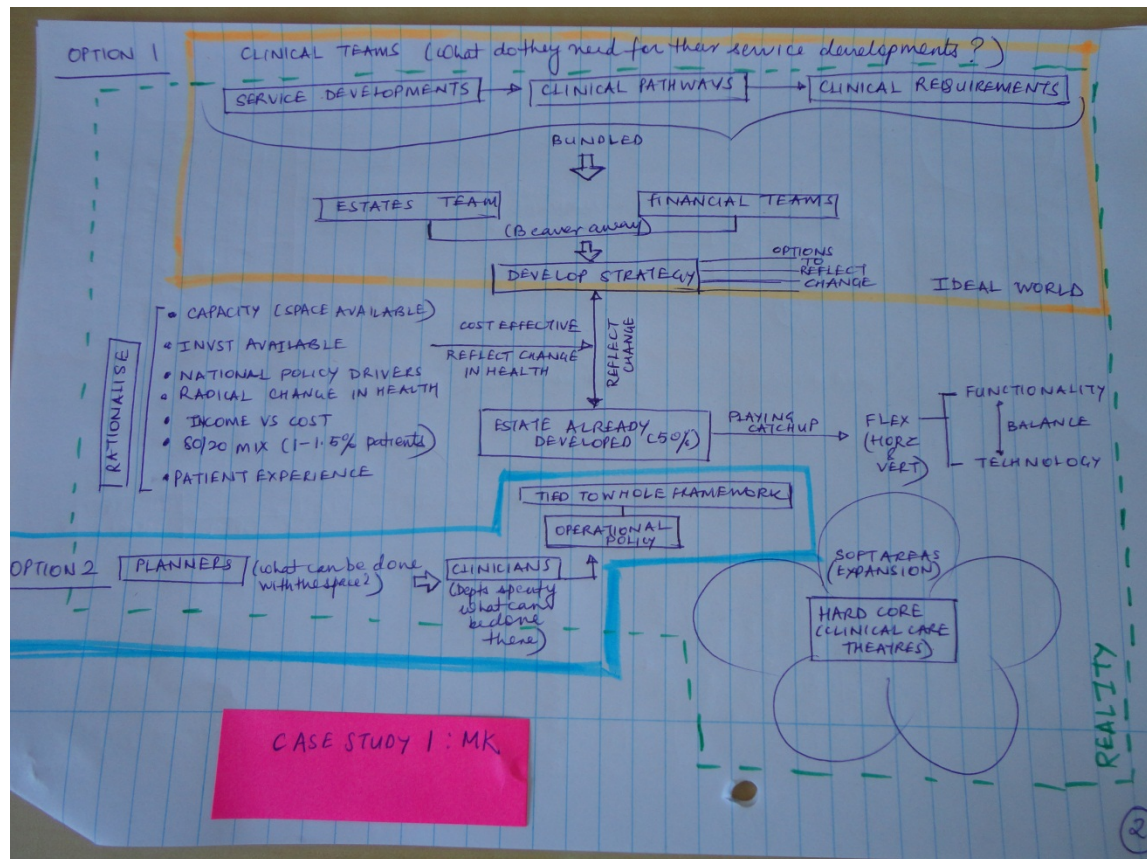 OPTION 1
CLINICAL TEAMS (What do they need for their service developments?)
SERVICE DEVELOPMENTS
CLINICAL PATHWAYS
CLINICAL REQUIREMENTS
BUNDLED
ESTATES TEAM
FINANCIAL TEAMS
(Beaver away)
DEVELOP STRATEGY
OPTIONS
TO
REFLECT
CHANGE
IDEAL WORLD
RATIONALISE
• CAPACITY (SPACE AVAILABLE)
• INVST AVAILABLE
• NATIONAL POLICY DRIVERS
• RADICAL CHANGE IN HEALTH
• INCOME VS COST
• 80/20 MIX (1-1.5% patients)
• PATIENT EXPERIENCE
COST EFFECTIVE
REFLECT CHANGE
IN HEALTH
REFLECT
CHANGE
ESTATE ALREADY
DEVELOPED (50%)
PLAYING
CATCHUP
FLEX
(HORZ
& VERT)
FUNCTIONALITY
BALANCE
TECHNOLOGY
TIED TO WHOLE FRAMEWORK
OPERATIONAL
POLICY
OPTION 2
PLANNERS
(what can be done
with the space?)
CLINICIANS
(Depts specify
what can
be done
there)
SOFT AREAS
(EXPANSION)
HARD CORE
(CLINICAL CARE
THEATRES)
REALITY
CASE STUDY 1 : MK
2